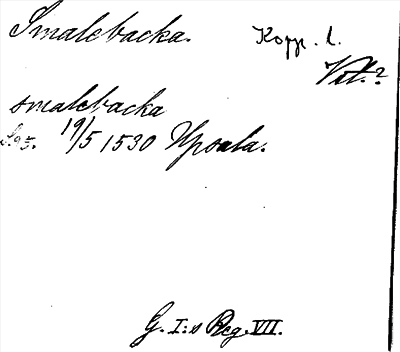 Smalebacka.
Kopp. l.
Vtl.?
smalebacka
S. 95. 19/5 1530 Upsala.
G. I:s Reg. VII.